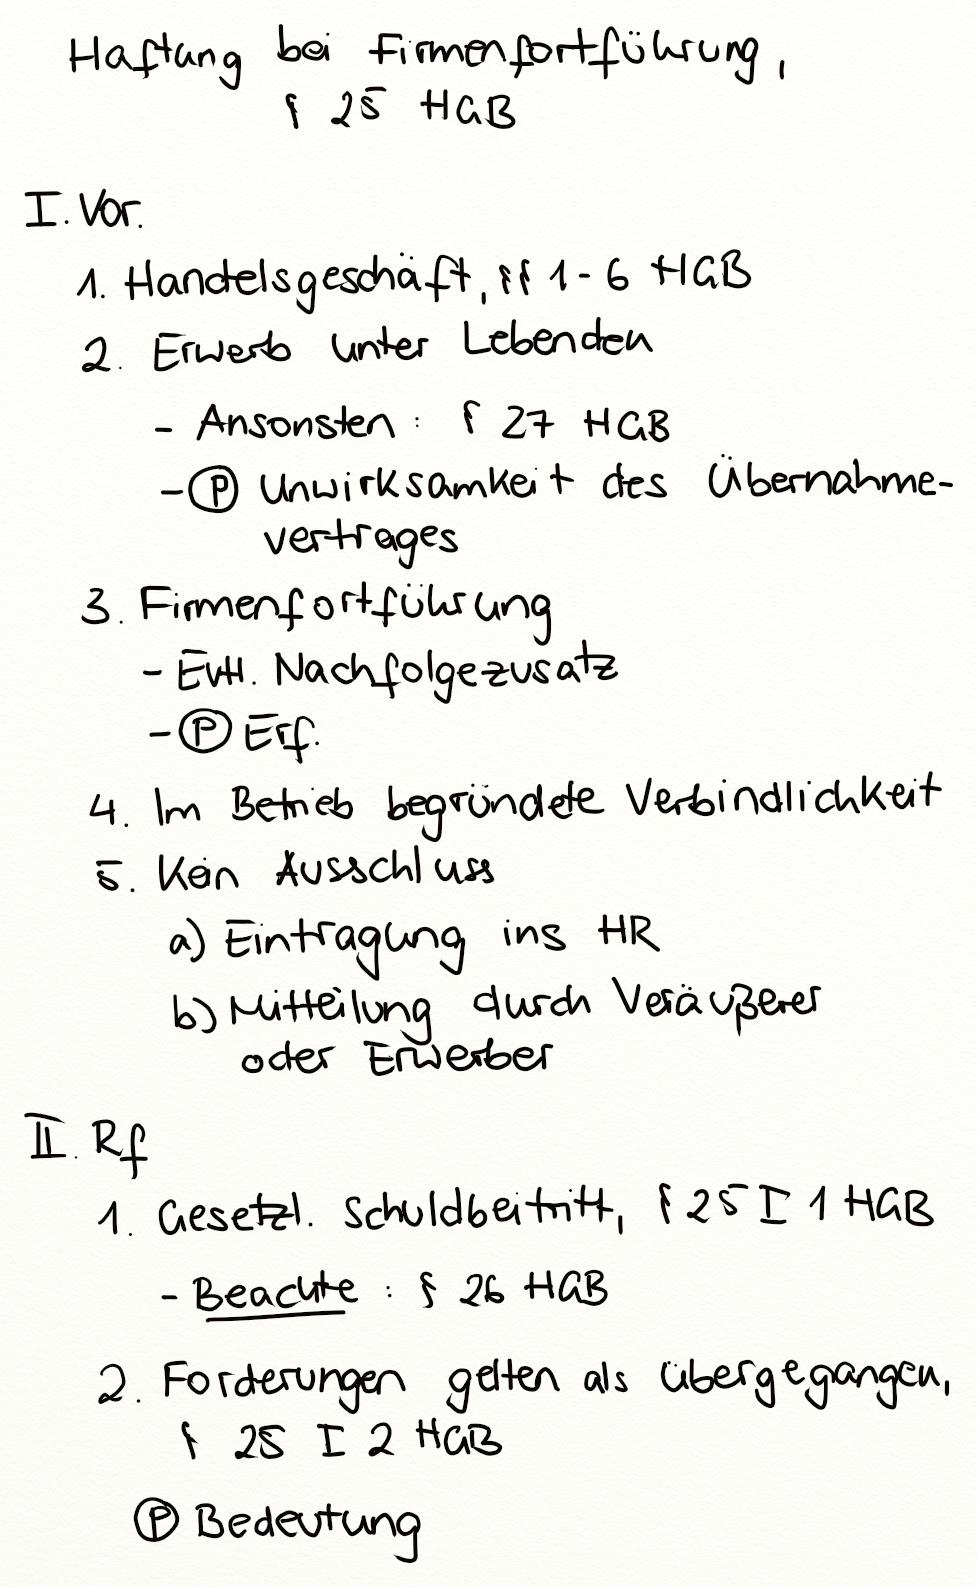 Haftung bei Firmenfortführung,
§ 25 HGB
I. Vor.
1. Handelsgeschäft, §§ 1-6 HGB
2. Erwerb unter Lebenden
- Ansonsten: § 27 HGB
- (P) Unwirksamkeit des Übernahme-
vertrages
3. Firmenfortführung
- Evtl. Nachfolgezusatz
- (P) Erf.
4. Im Betrieb begründete Verbindlichkeit
5. Kein Ausschluss
a) Eintragung ins HR
b) Mitteilung durch Veräußerer
oder Erwerber
II. Rf
1. Gesetzl. Schuldbeitritt, § 25 I 1 HGB
- Beachte: § 26 HGB
2. Forderungen gelten als übergegangen,
§ 25 I 2 HGB
(P) Bedeutung